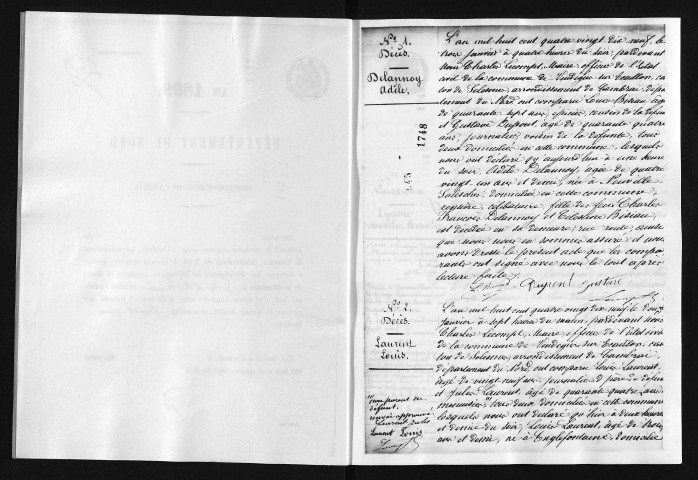 AN 1899
DÉPARTEMENT DU NORD
N° 1.
Décès.
Delannoy
Adèle.
1748
L'an mil huit cent quatre vingt dix neuf, le
trois janvier à quatre heures du soir, pardevant
Nous Charles Lecompt, Maire, officier de l'état
civil de la commune de Vendegies sur Ecaillon, can
ton de Solesmes, arrondissement de Cambrai, dépar
tement du Nord, ont comparu Louis Bisiau, âgé
de quarante sept ans, épicier, cousin de la défunte
et Gustave Dupont, âgé de quarante quatre
ans, journalier, voisin de la défunte, tous
deux domiciliés en cette commune, lesquels
nous ont déclaré qu'aujourd'hui à une heure
du soir, Adèle Delannoy, âgée de quatre
vingt un ans et demi, née à Neuville
domiciliée en cette commune,
célibataire, fille de feus Charles
François Delannoy et Célestine Bisiau,
est décédée en sa demeure, rue ainsi
que nous nous en sommes assuré et nous
avons dressé le présent acte que les compa
rants ont signé avec nous le tout après
lecture faite.
Dupont Gustave
N° 2.
Décès.
Laurent
Louis.
défunt,
approuvé
Laurent Jules
Laurent Louis
L'an mil huit cent quatre vingt dix neuf, le douze
janvier à sept heures du matin, pardevant nous
Charles Lecompt, Maire, officier de l'état civil
de la commune de Vendegies sur Ecaillon, can
ton de Solesmes, arrondissement de Cambrai,
département du Nord, ont comparu Louis Laurent,
âgé de vingt neuf ans, journalier, père du défunt
et Jules Laurent, âgé de quarante quatre ans,
tous deux domiciliés en cette commune
lesquels nous ont déclaré qu'hier à deux heures
et demie du soir, Louis Laurent, âgé de trois
ans et demi, né à Englefontaine, domicilié